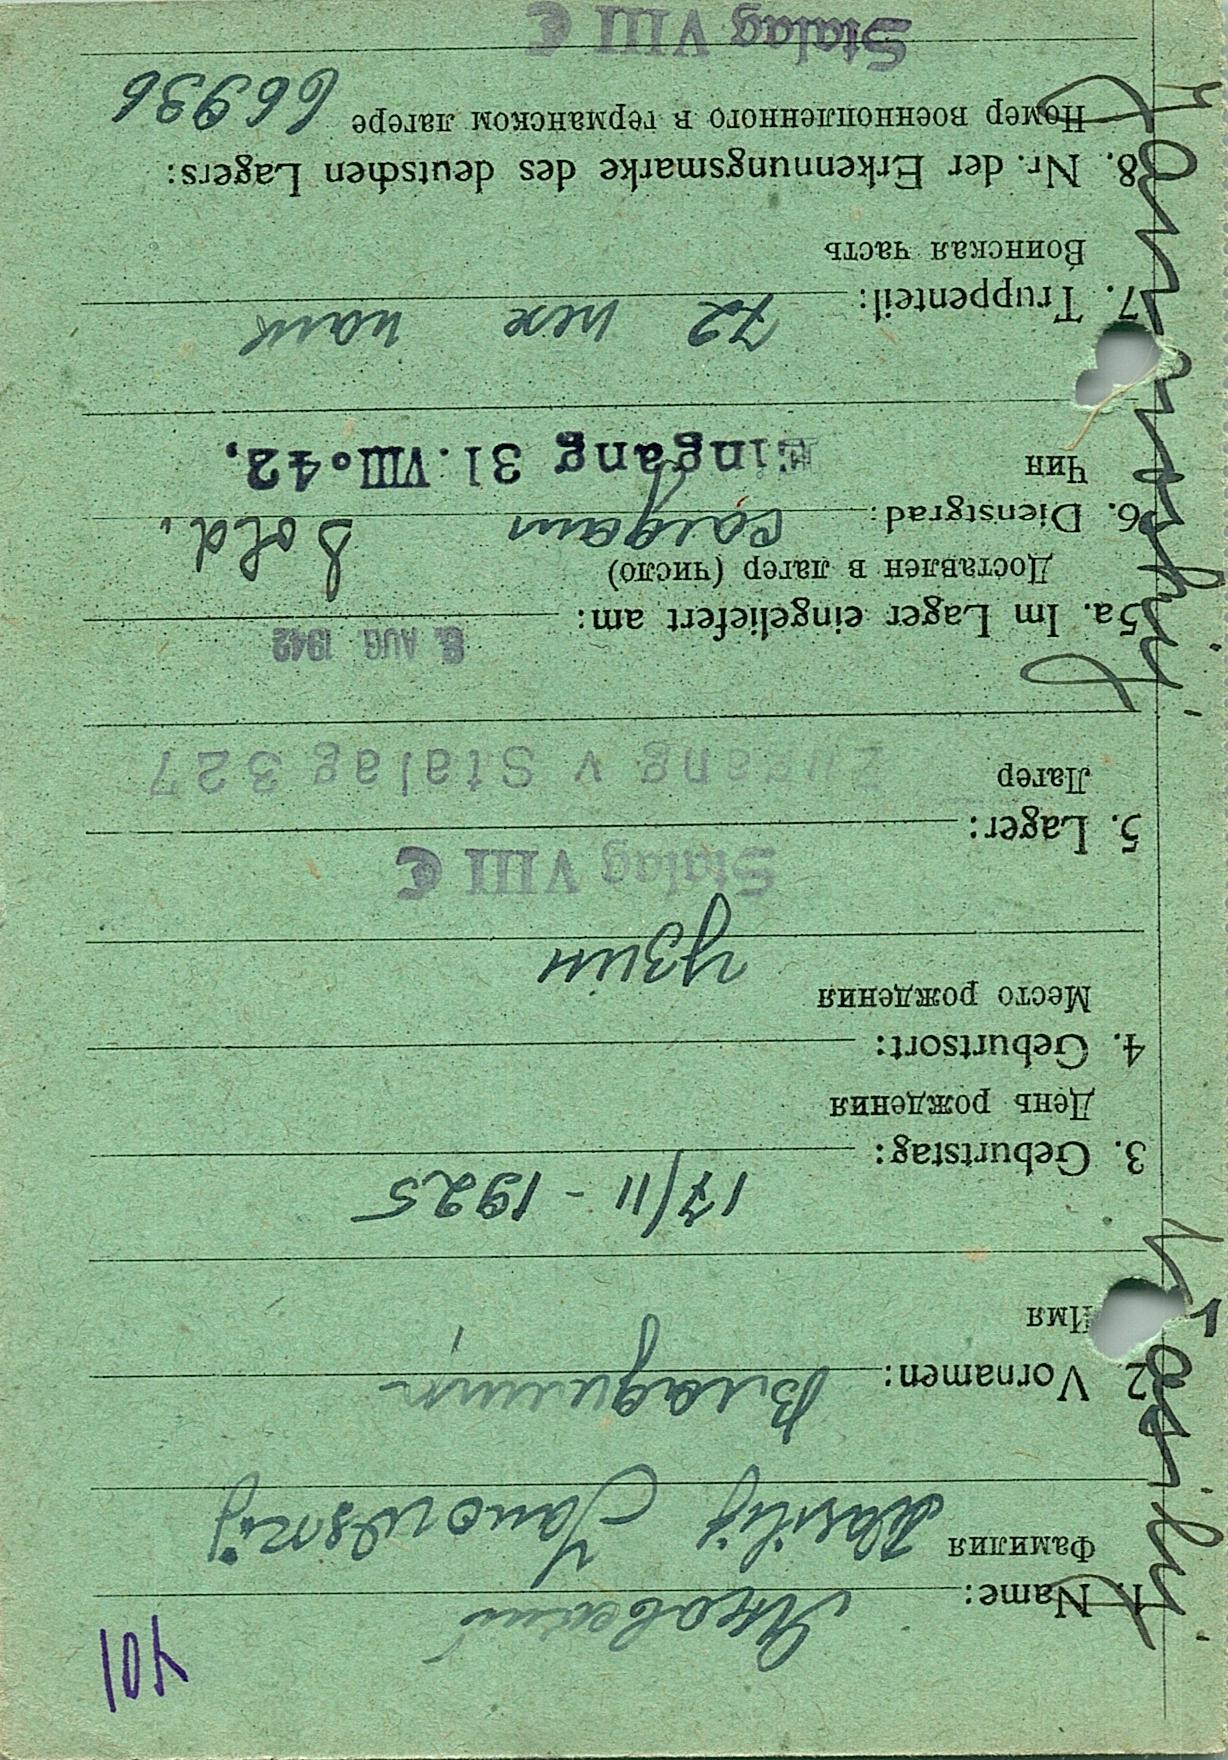 401
1. Name:
Яновский
Фамилия
Wasilij Janowskij
2. Vornamen:
Владимир
Имя
3. Geburtstag:
17/11 - 1925
День рождения
4. Geburtsort:
Место рождения
Узин
Stalag VIII C
5. Lager:
Лагер
Zugang v Stalag 327
5a. Im Lager eingeliefert am:
6. AUG. 1942
Доставлен в лагер (число)
6. Dienstgrad:
солдат Sold.
Чин
Eingang 31. VIII. 42.
7. Truppenteil:
72
Воинская часть
8. Nr. der Erkennungsmarke des deutschen Lagers:
Номер военнопленного в германском лагере 66936
Stalag VIII C
Wasilij Janowskij